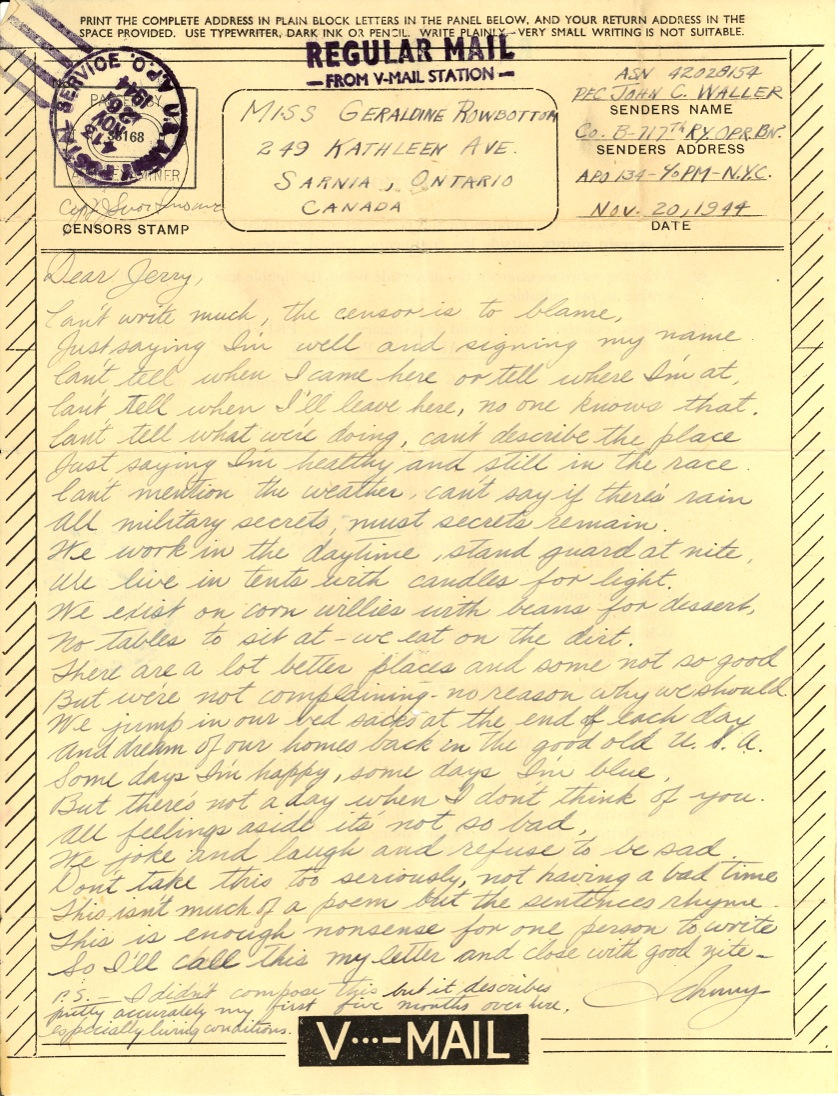 PRINT THE COMPLETE ADDRESS IN PLAIN BLOCK LETTERS IN THE PANEL BELOW, AND YOUR RETURN ADDRESS IN THE
SPACE PROVIDED. USE TYPEWRITER, DARK INK OR PENCIL. WRITE PLAINLY. VERY SMALL WRITING IS NOT SUITABLE.
REGULAR MAIL
—FROM V-MAIL STATION—
U.S. ARMY POSTAL SERVICE A.P.O.
NOV
26
1944
38168
CENSORS STAMP
MISS GERALDINE ROWBOTTOM
249 KATHLEEN AVE.
SARNIA, ONTARIO
CANADA
ASN 42028154
PFC JOHN C. WALLER
SENDERS NAME
Co. B-717th RY. OPR. BN.
SENDERS ADDRESS
APO 134-℅PM-N.Y.C.
NOV. 20, 1944
DATE
Dear Jerry,
Can't write much, the censor is to blame,
Just saying I'm well and signing my name
Can't tell when I came here or tell where I'm at,
Can't tell when I'll leave here, no one knows that.
Can't tell what we're doing, can't describe the place
Just saying I'm healthy and still in the race.
Can't mention the weather, can't say if there's rain
All military secrets, must secrets remain.
We work in the daytime, stand guard at nite,
We live in tents with candles for light.
We exist on corn willies with beans for dessert,
No tables to sit at - we eat on the dirt.
There are a lot better places and some not so good
But we're not complaining - no reason why we should
We jump in our bed sacks at the end of each day
And dream of our homes back in the good old U.S.A.
Some days I'm happy, some days I'm blue,
But there's not a day when I don't think of you.
All feelings aside it's not so bad,
We joke and laugh and refuse to be sad
Don't take this too seriously, not having a bad time
This isn't much of a poem but the sentences rhyme.
This is enough nonsense for one person to write
So I'll call this my letter and close with good nite —
P.S. — I didn't compose this but it describes
pretty accurately my first five months over here,
especially living conditions.
Johnny
V···—MAIL